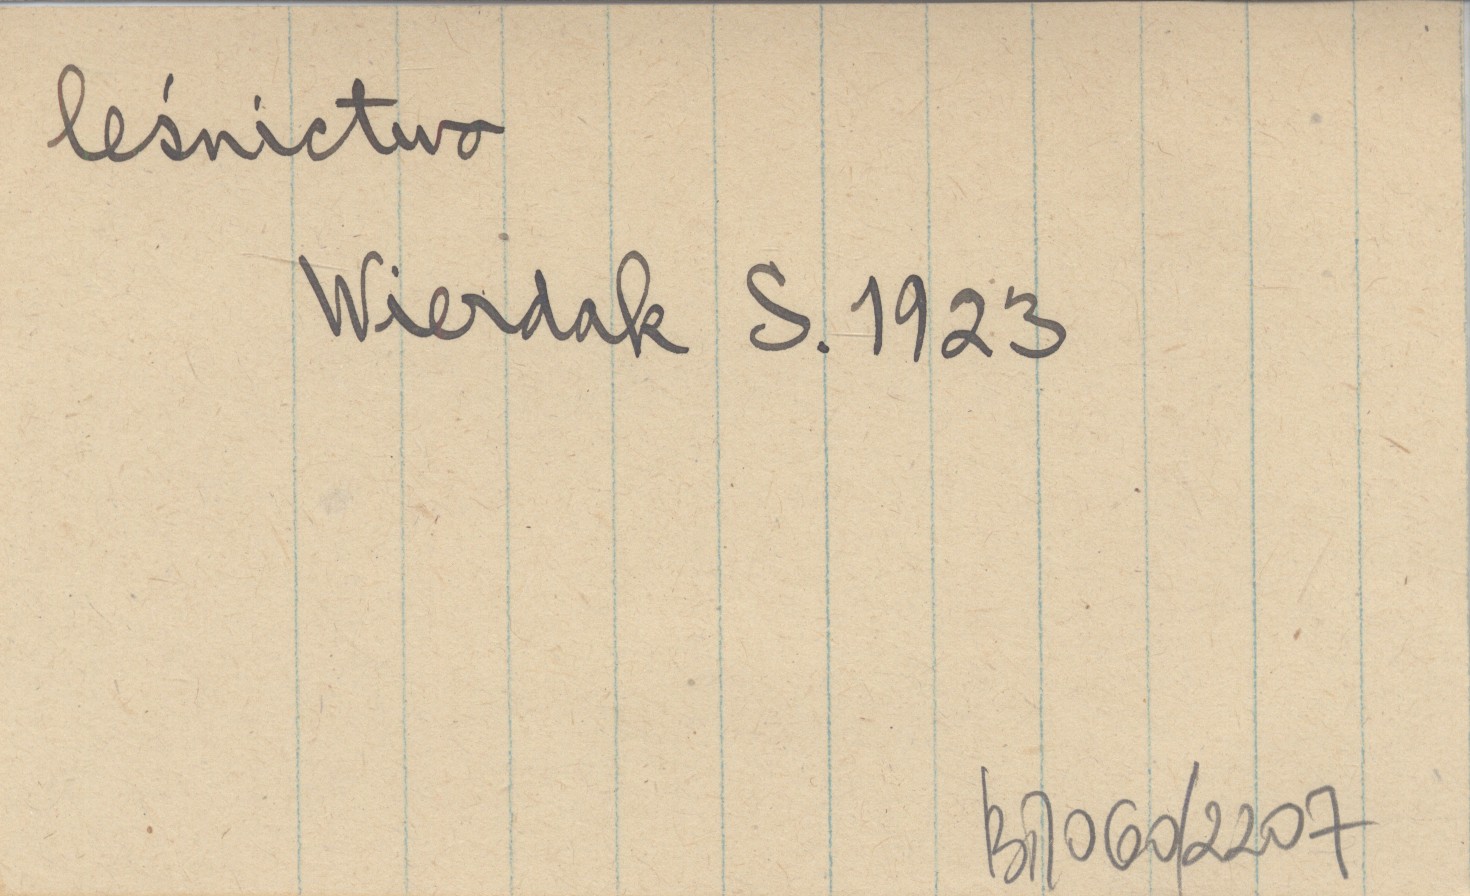 leśnictwo
Wierdak S. 1923
BI/060/2207